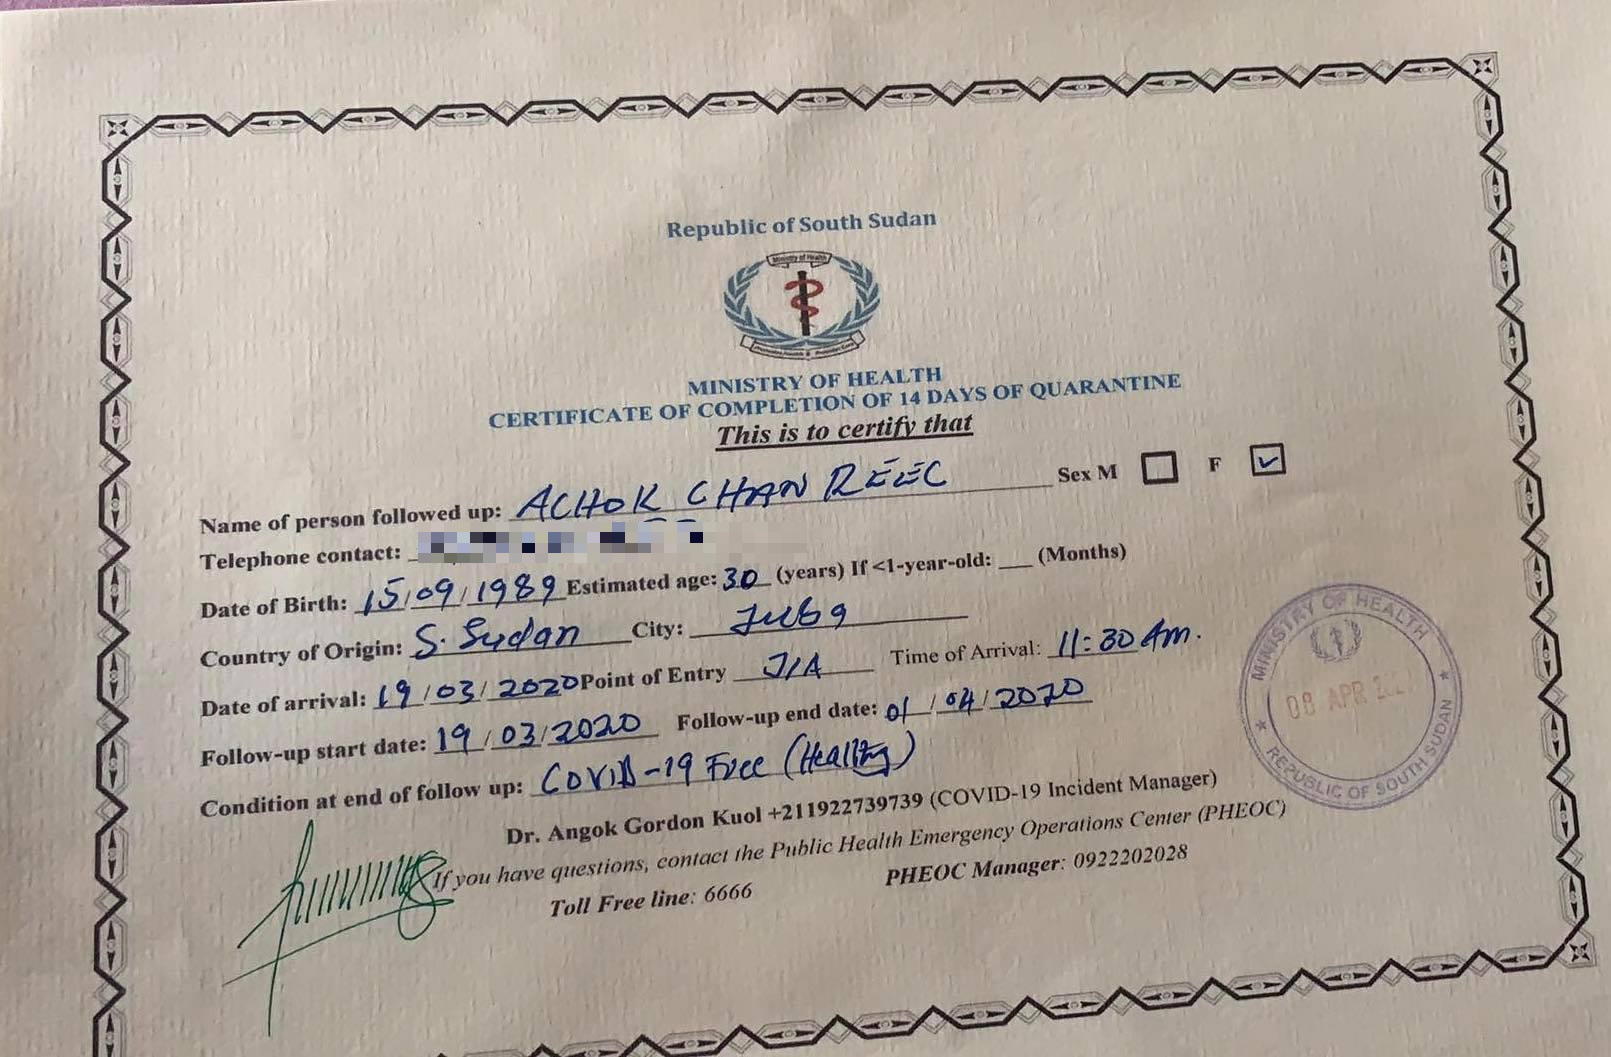 Republic of South Sudan
Ministry of Health
MINISTRY OF HEALTH
CERTIFICATE OF COMPLETION OF 14 DAYS OF QUARANTINE
This is to certify that
Name of person followed up: ACHOK CHAN REEC Sex M F
Telephone contact:
Date of Birth: 15/09/1989 Estimated age: 30 (years) If <1-year-old: ___ (Months)
Country of Origin: S. Sudan City: Juba
Date of arrival: 19/03/2020 Point of Entry J/A Time of Arrival: 11:30 Am.
Follow-up start date: 19/03/2020 Follow-up end date: 01/04/2020
Condition at end of follow up: COVID-19 Free (Healthy)
Dr. Angok Gordon Kuol +211922739739 (COVID-19 Incident Manager)
If you have questions, contact the Public Health Emergency Operations Center (PHEOC)
Toll Free line: 6666 PHEOC Manager: 0922202028
MINISTRY OF HEALTH
08 APR
REPUBLIC OF SOUTH SUDAN